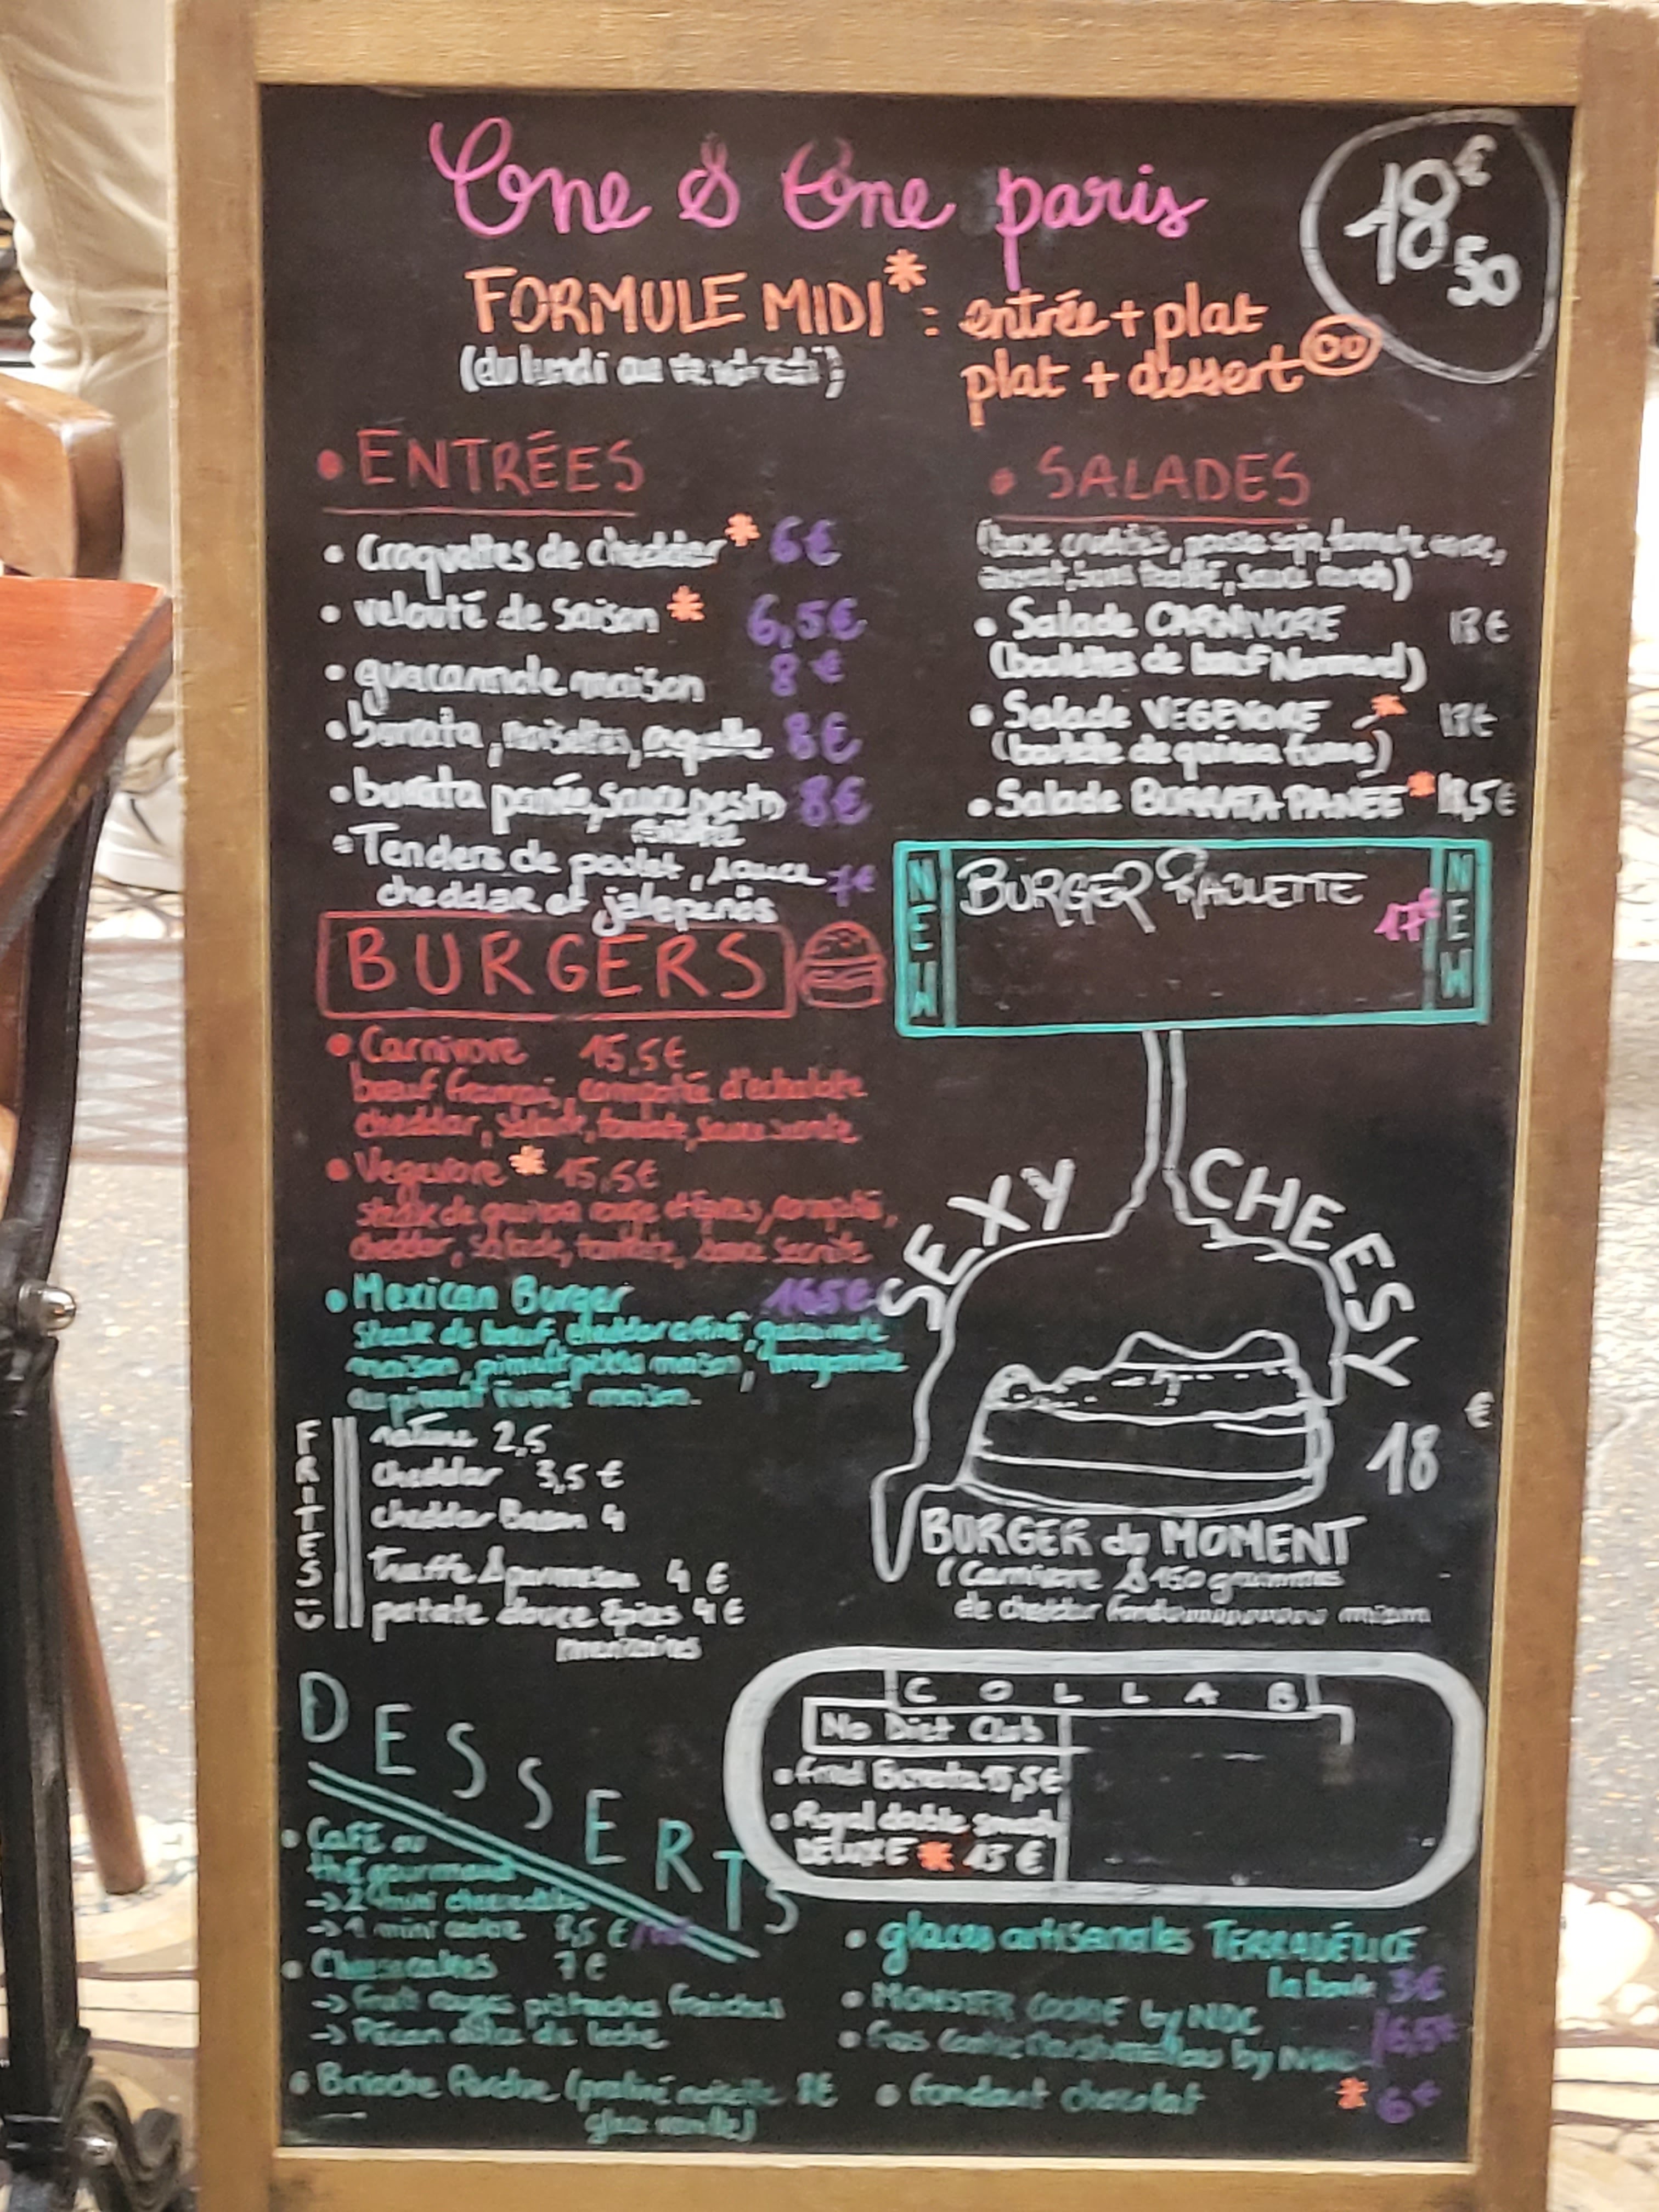 One & One paris
18€50
FORMULE MIDI* : entrée + plat
(du lundi au vendredi)
ou
plat + dessert
• ENTRÉES
• Croquettes de cheddar* 6€
• velouté de saison * 6,5€
• guacamole maison 8€
• burrata, noisettes, roquette 8€
• burrata panée, sauce pesto 8€
• Tenders de poulet, sauce 7€
cheddar et jalepeños
• SALADES
• Salade CARNIVORE
(boulettes de bœuf Normand)
• Salade VEGEVORE *
(boulette de quinoa fumé)
• Salade BURRATA PANEE *
NEW
BURGER RACLETTE
17€
NEW
BURGERS
• Carnivore 15,5€
bœuf français, compotée d'échalote
cheddar, salade, tomate, sauce secrète
• Vegevore * 15,5€
steak de quinoa rouge et épices, compotée,
cheddar, salade, tomate, sauce secrète
• Mexican Burger 16,5€
steak de bœuf, cheddar affiné, guacamole
maison, maison,
au piment fumé maison.
SEXY CHEESY
18€
BURGER du MOMENT
(Carnivore & 150 grammes
de cheddar
FRITES
nature 2,5
cheddar 3,5 €
cheddar Bacon 4
truffe & parmesan 4 €
patate douce épices 4 €
COLLAB
No Diet Club
• Fried Burrata 15,5€
• Royal double smash
DELUXE * 15 €
DESSERTS
• Café ou
thé gourmand
→ 2 mini
→ 1 mini 8,5 €
• Cheesecakes 7€
→ Fruits rouges pistaches fraîches
→ Pécan dulce de leche
• Brioche Perdue (praliné noisette 8€
glace vanille)
• glaces artisanales TERRADÉLICE
la boule 3€
• MONSTER COOKIE by NDC
by NDC 6,5€
• Fondant chocolat * 6€